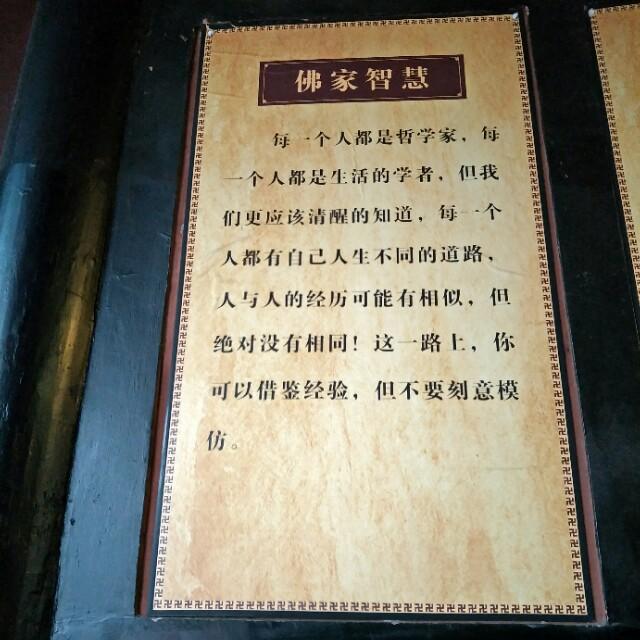 佛家智慧
每一个人都是哲学家，每
一个人都是生活的学者，但我
们更应该清醒的知道，每一个
人都有自己人生不同的道路，
人与人的经历可能有相似，但
绝对没有相同！这一路上，你
可以借鉴经验，但不要刻意模
仿。